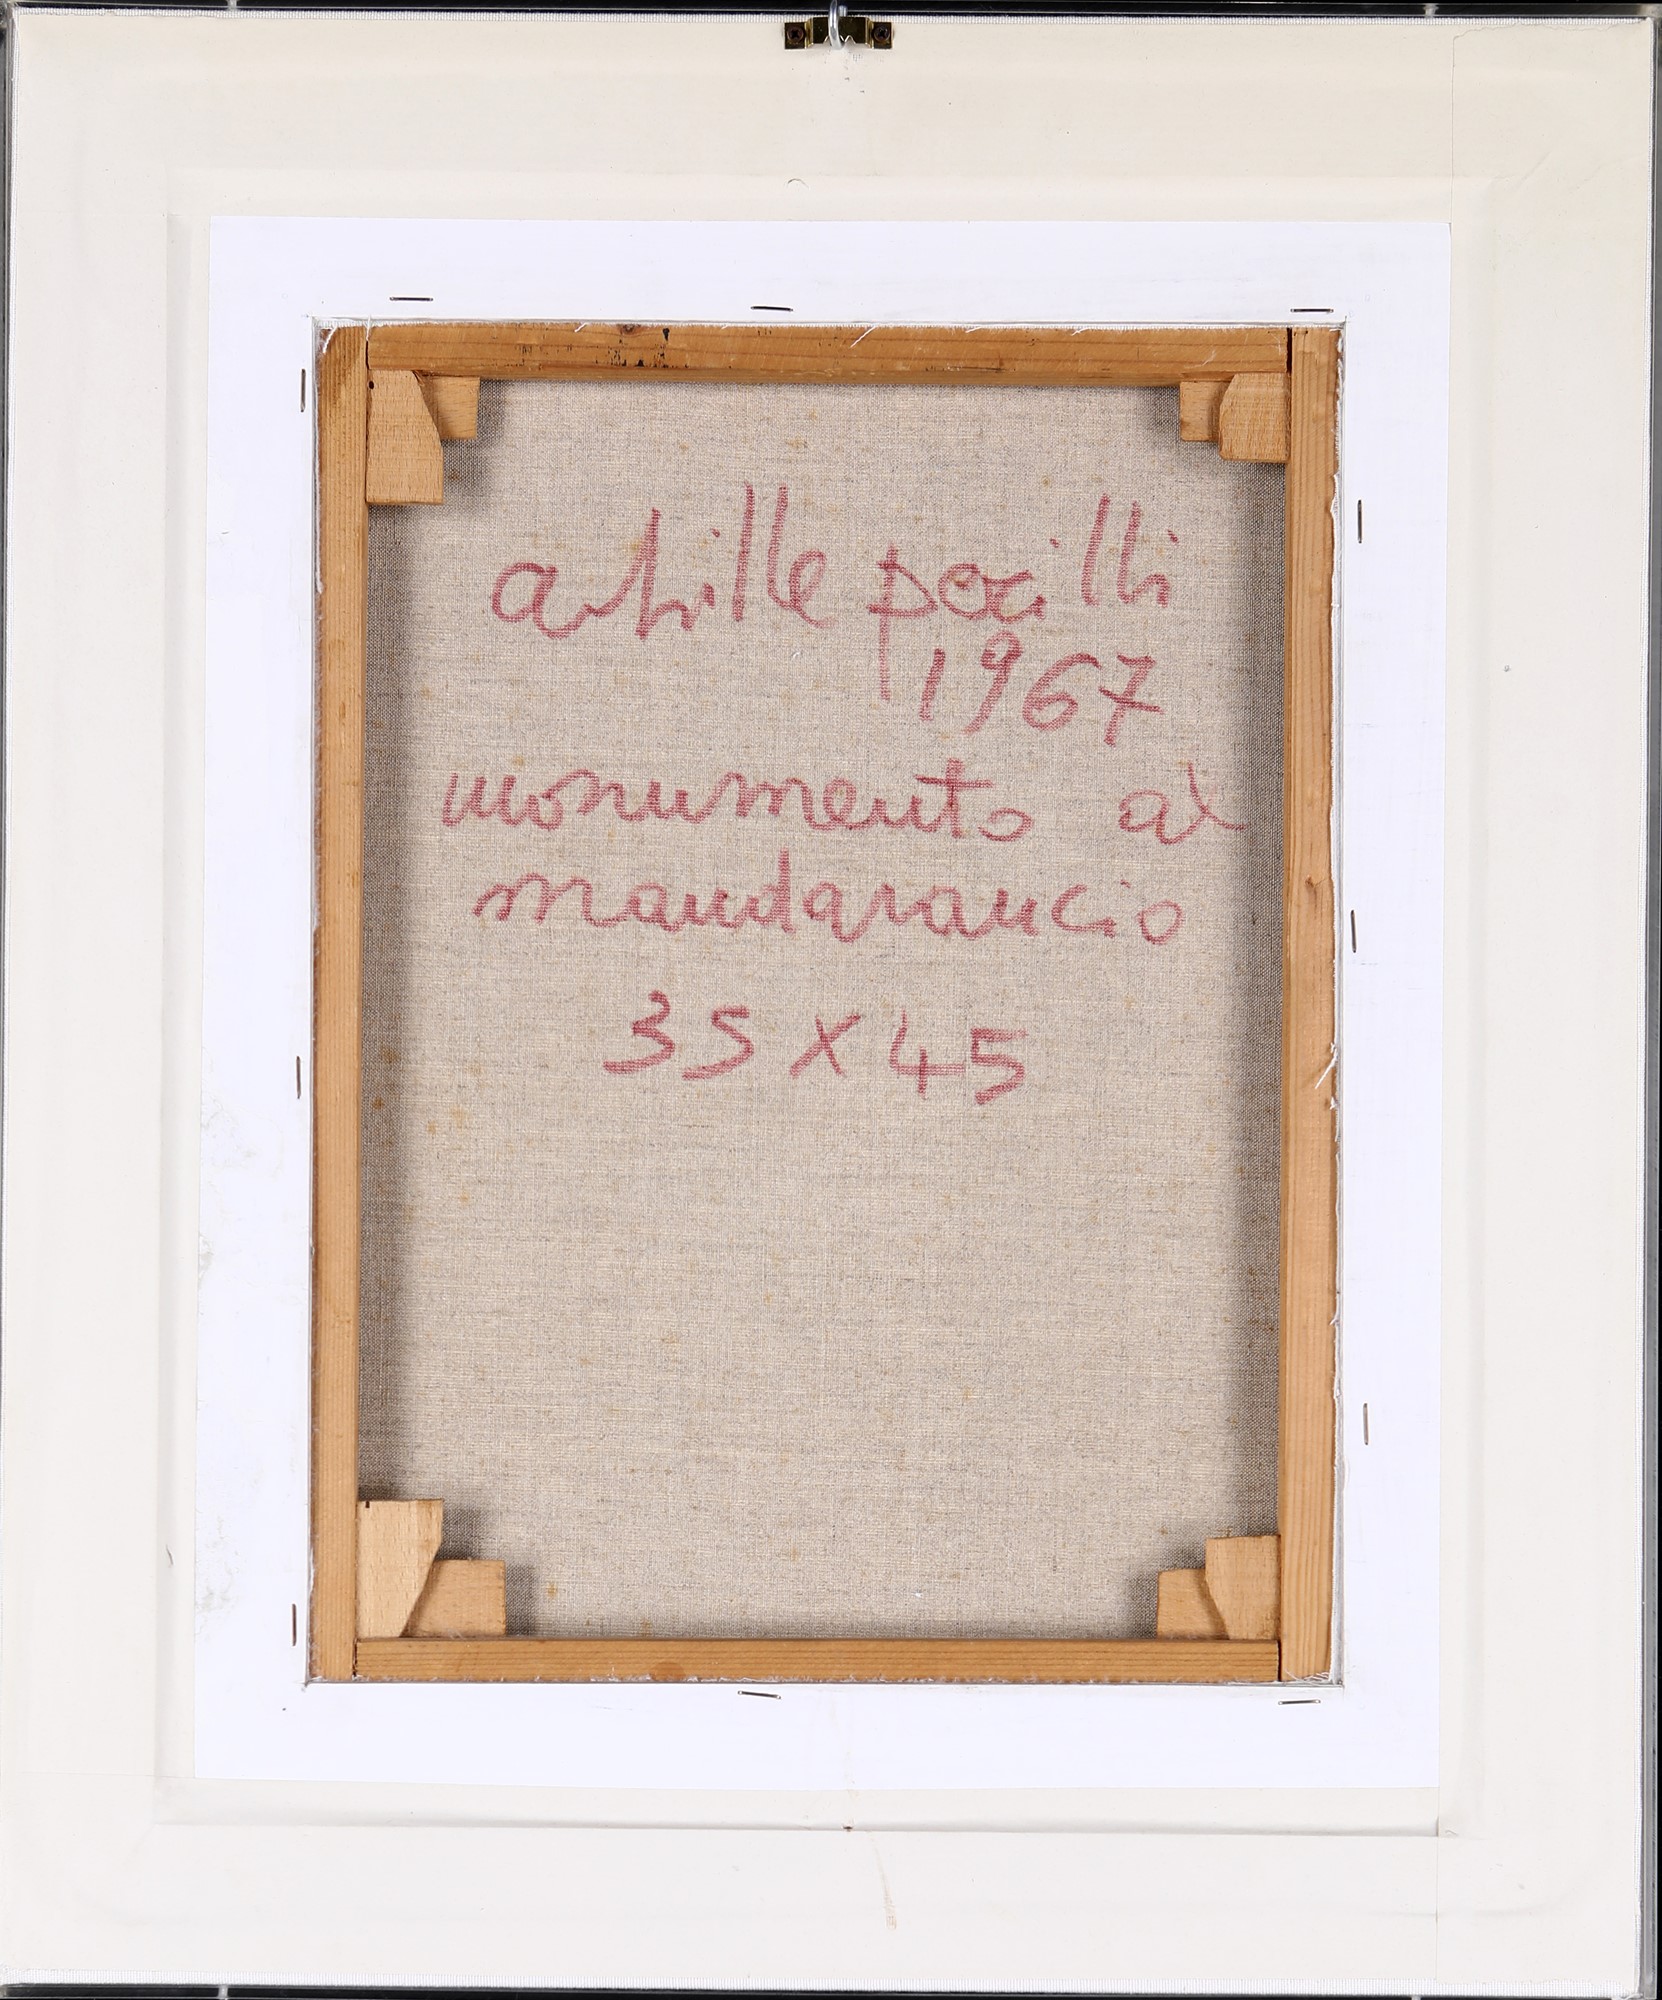 achille perilli
1967
monumento al
mandarancio
35 x 45